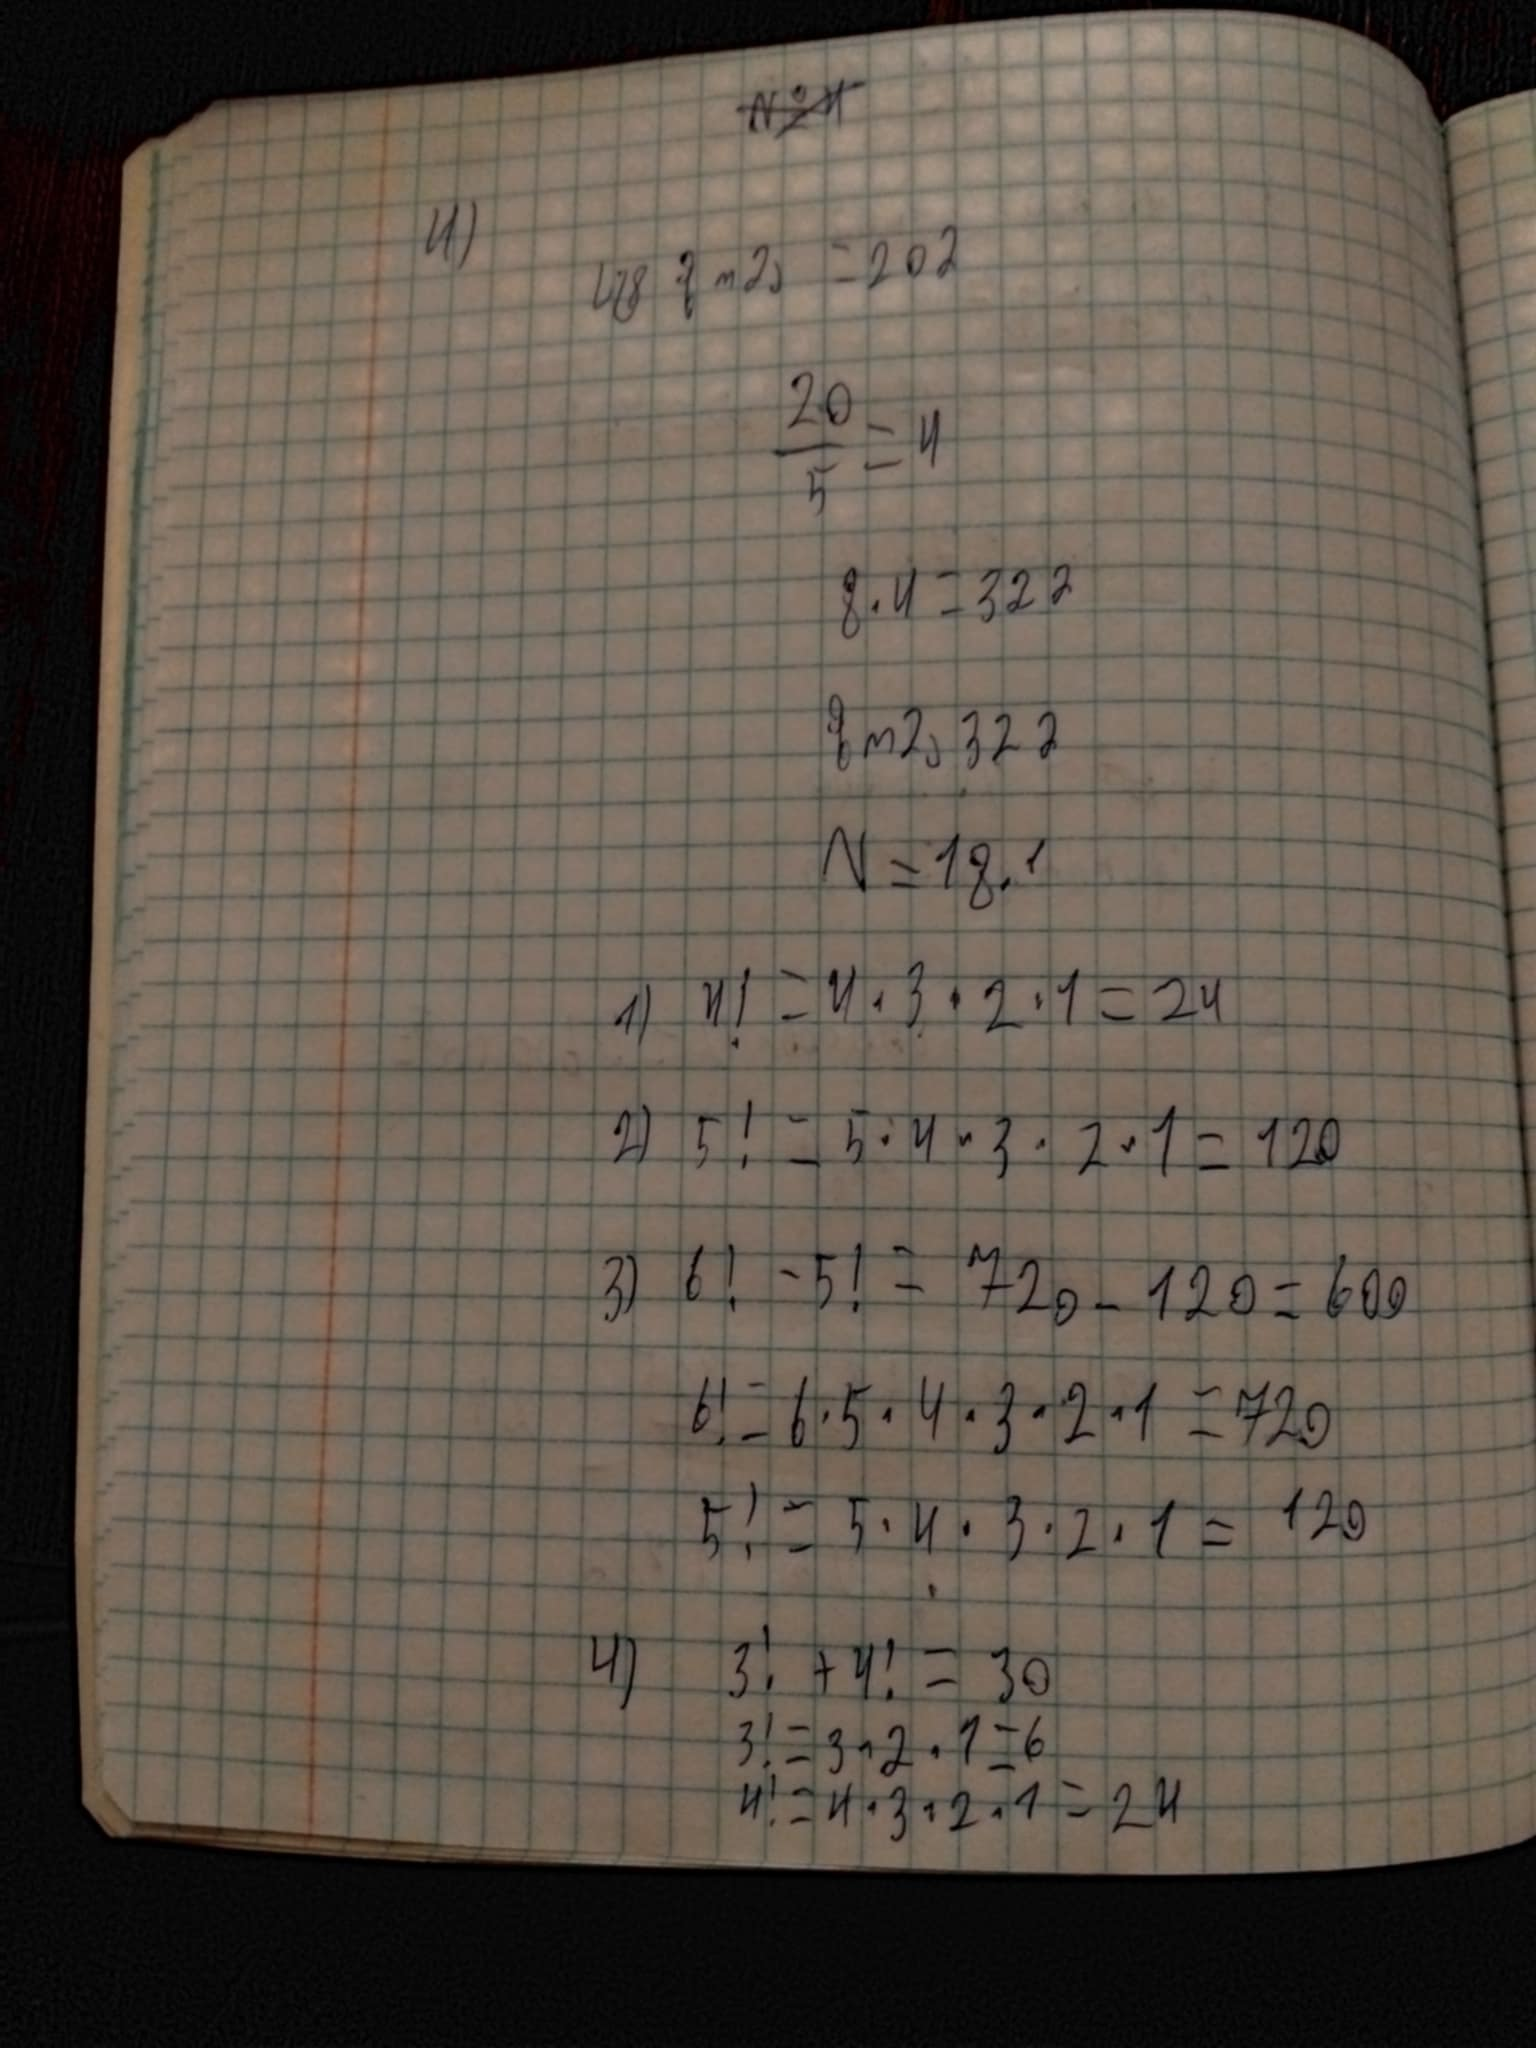 4)
= 20 г
20/5 = 4
8 · 4 = 32 г
32 г
N = 18.1
1) 4! = 4 · 3 · 2 · 1 = 24
2) 5! = 5 · 4 · 3 · 2 · 1 = 120
3) 6! - 5! = 720 - 120 = 600
6! = 6 · 5 · 4 · 3 · 2 · 1 = 720
5! = 5 · 4 · 3 · 2 · 1 = 120
4) 3! + 4! = 30
3! = 3 · 2 · 1 = 6
4! = 4 · 3 · 2 · 1 = 24